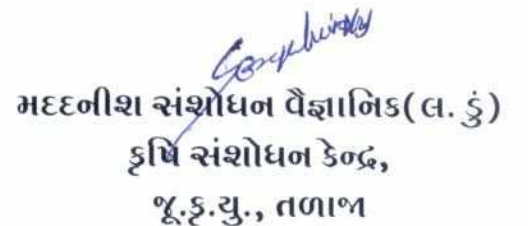 મદદનીશ સંશોધન વૈજ્ઞાનિક(લ. ડું)
કૃષિ સંશોધન કેન્દ્ર,
જૂ.કૃ.યુ., તળાજા